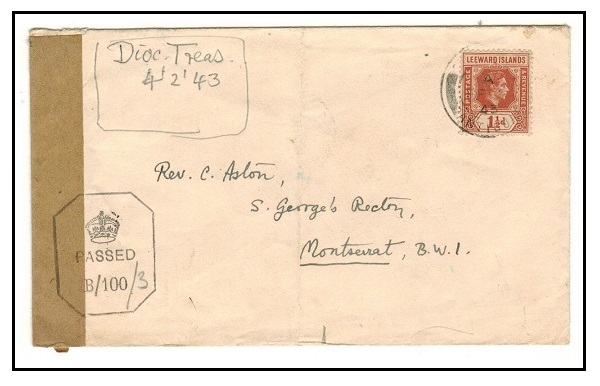 Dioc. Treas.
4'2'43
LEEWARD ISLANDS
POSTAGE
& REVENUE
1½d
A
43
AN
Rev. C. Aston,
S. George's Rectory,
Montserrat, B.W.I.
PASSED
B/100/3